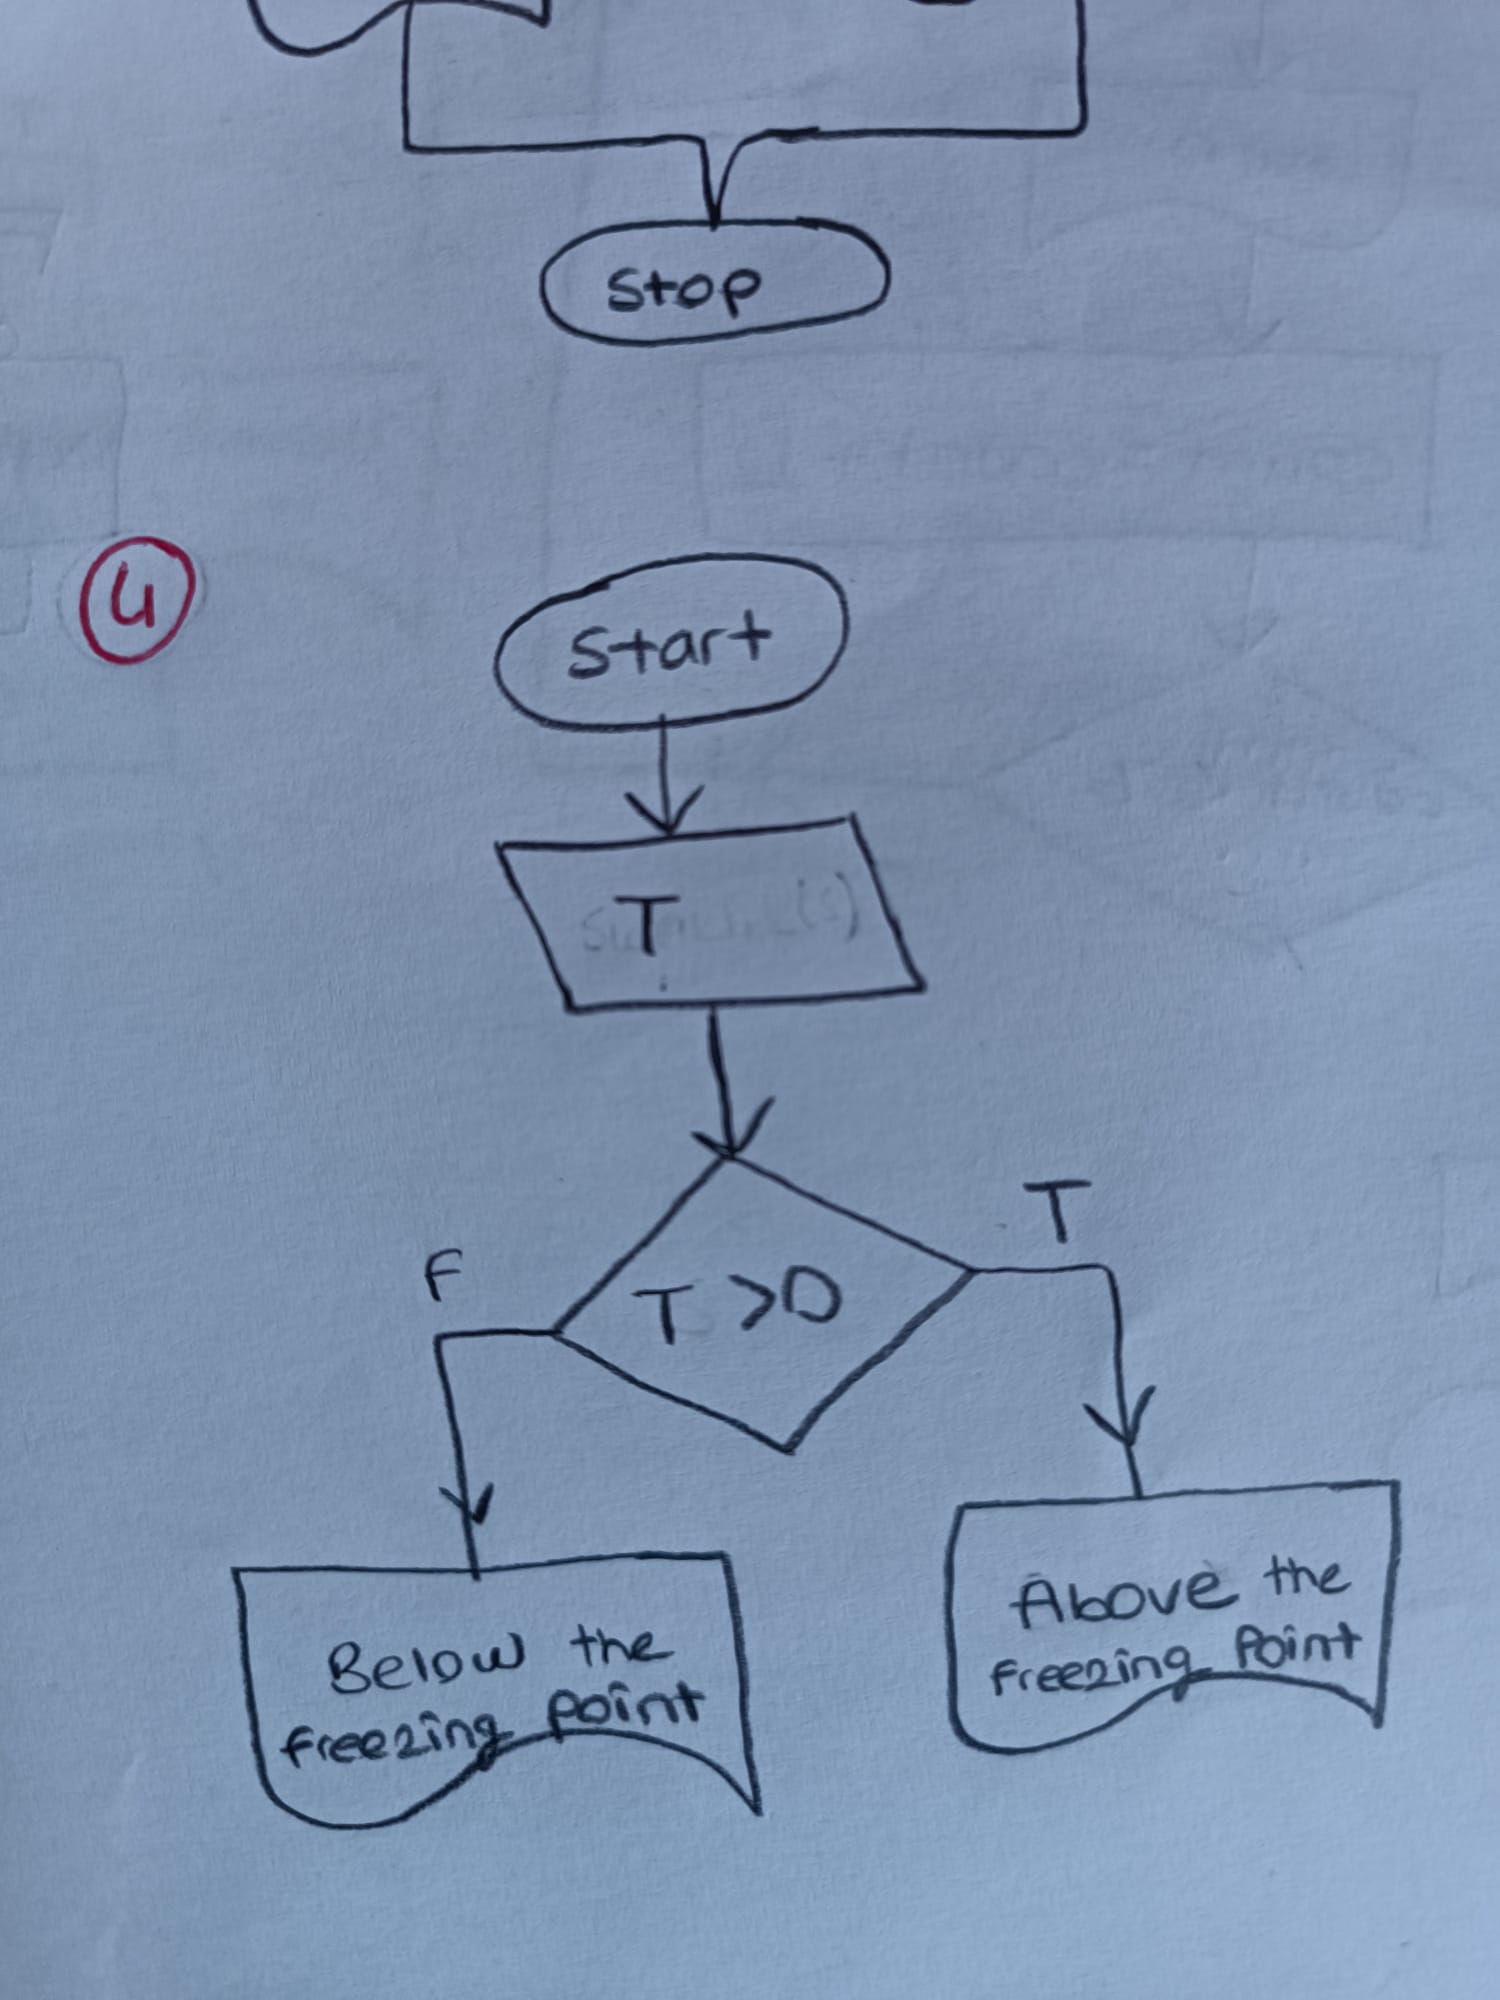 Stop
4
Start
T
T >0
F
T
Below the
freezing point
Above the
freezing point